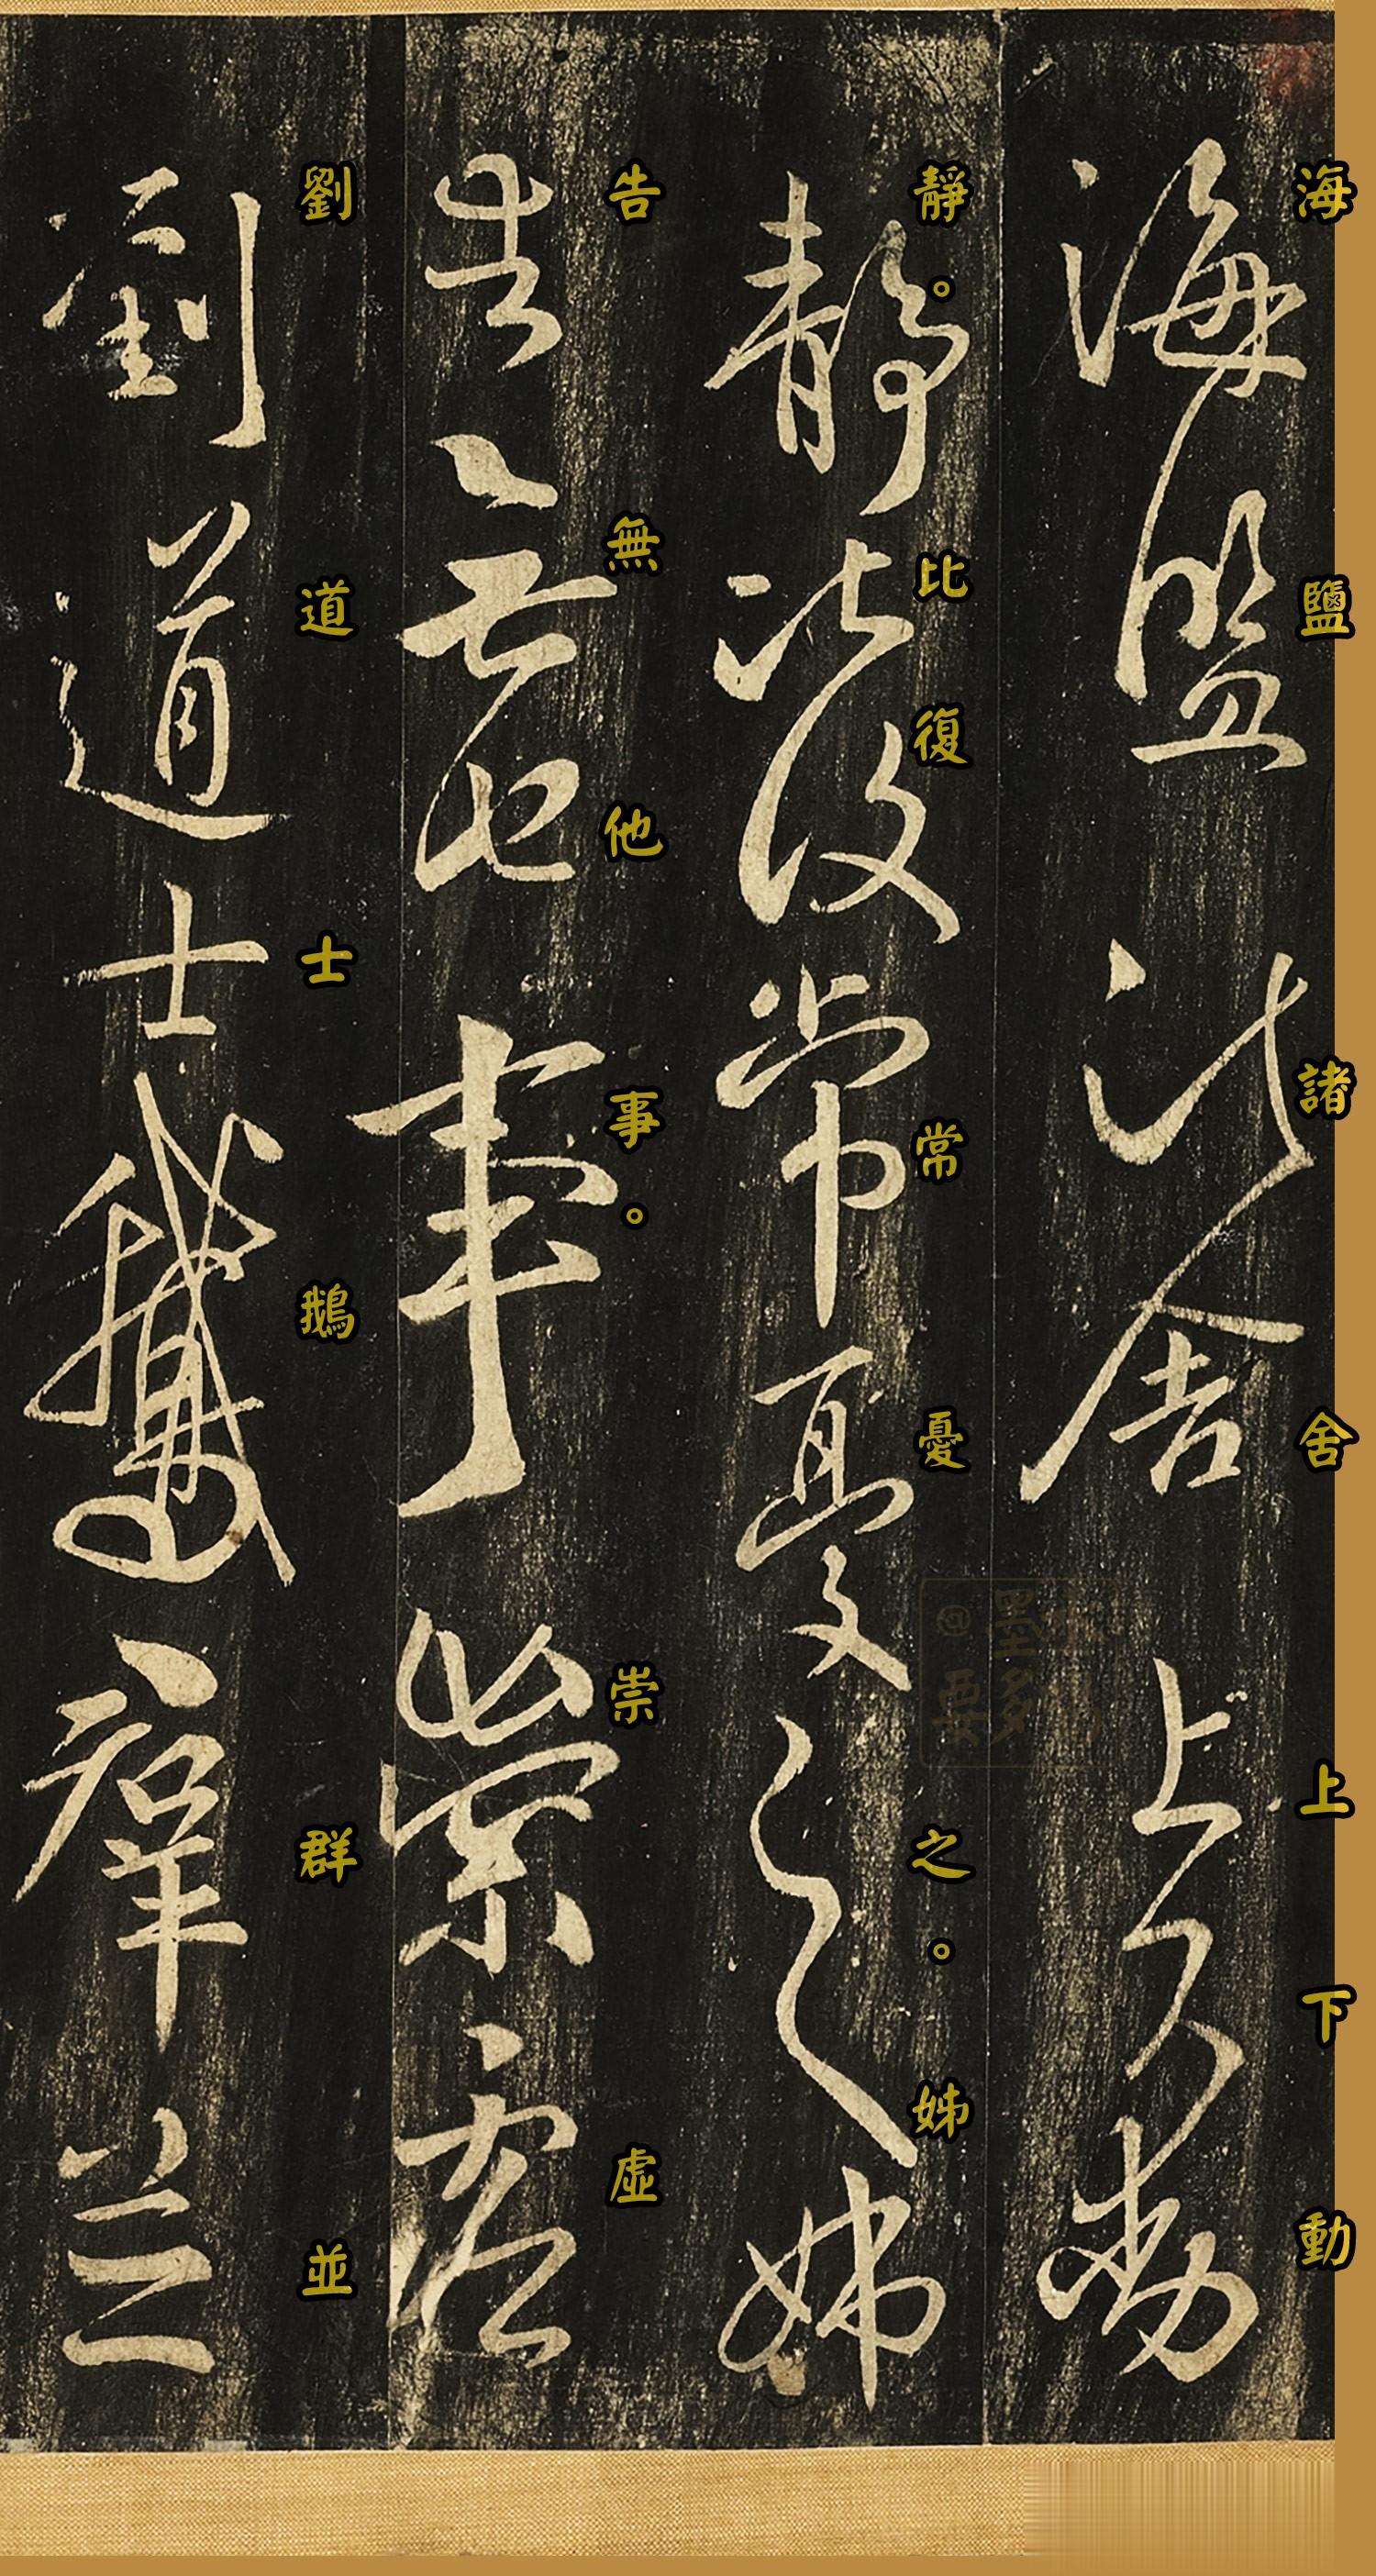 海鹽諸舍上下動
靜。比復常憂之。姊
告無他事。崇虛
劉道士鵝群並